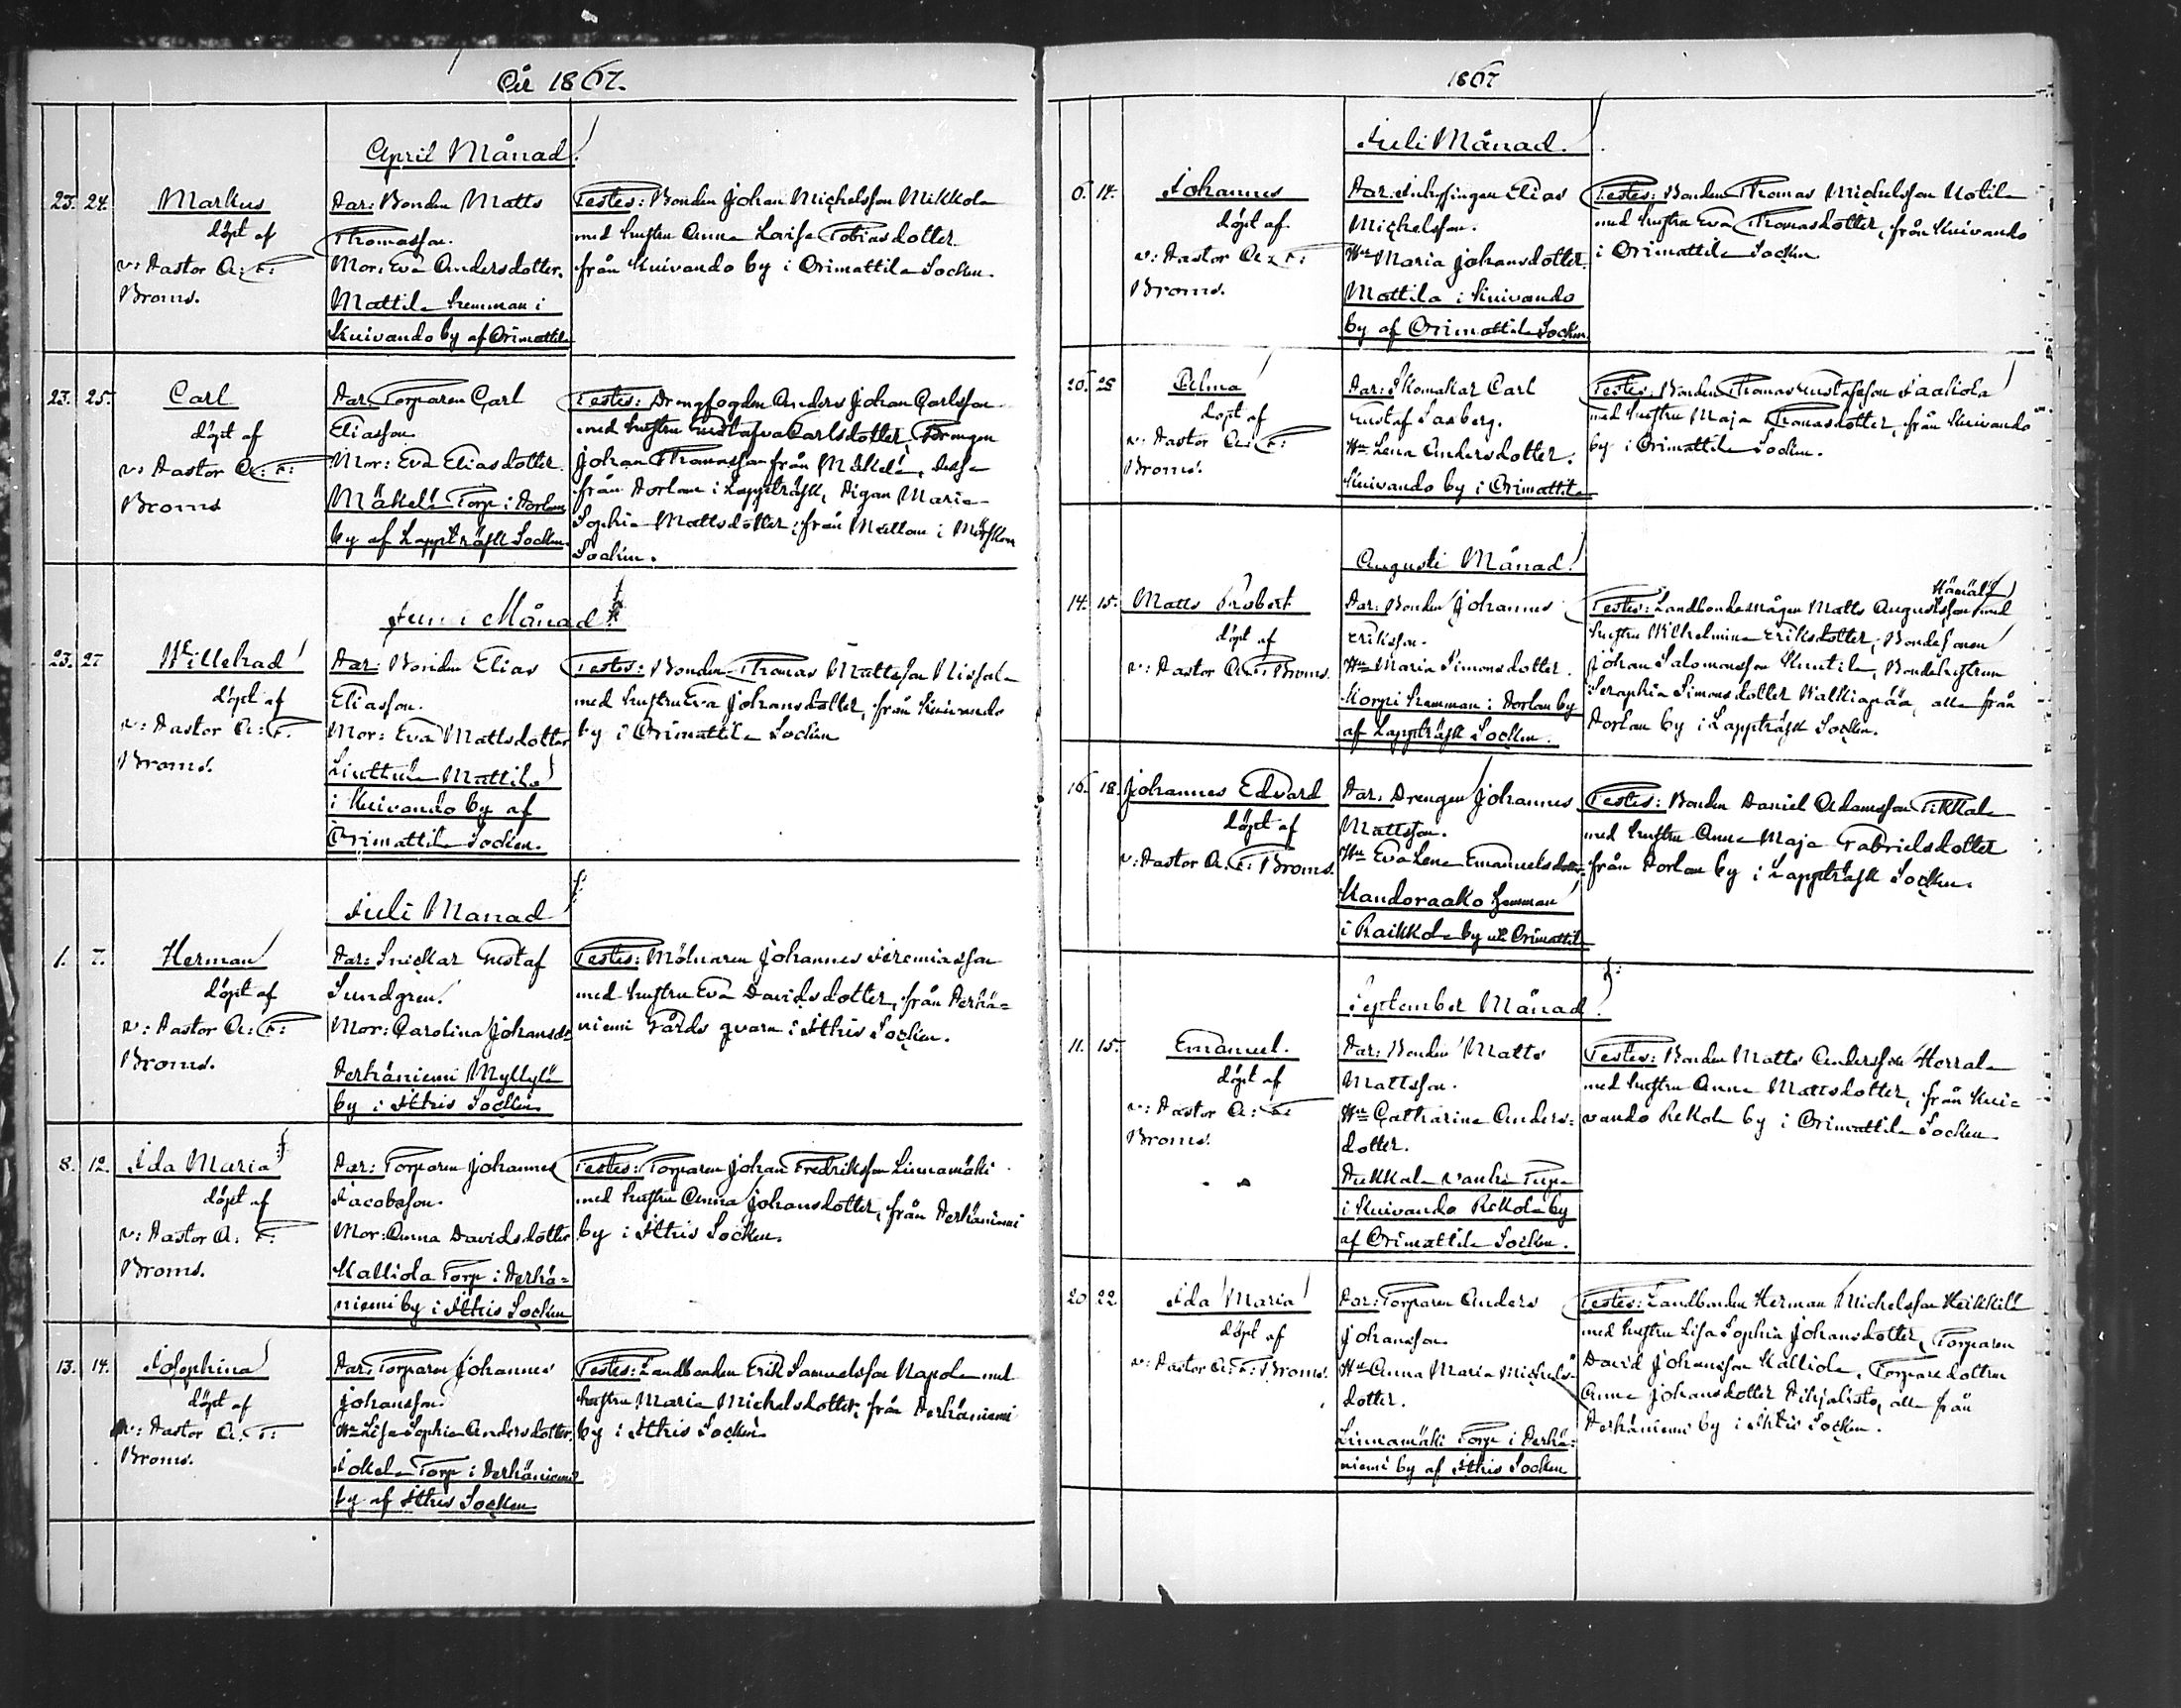 År 1867.
April Månad.
23. 24. Markus
döpt af
v: Pastor A: F:
Broms.
Par: Bonden Matts
Thomasson.
Mor: Eva Andersdotter.
Mattila hemman i
Kuivando by af Orimattila
Testes: Bonden Johan Michelsson Mikkola
med hustru Anna Lovisa Tobiasdotter
från Kuivando by i Orimattila Socken.
23. 25. Carl
döpt af
v: Pastor A: F:
Broms
Par Torparen Carl
Eliasson.
Mor: Eva Eliasdotter.
Mäkelä Torp i Porlom
by af Lappträsk Socken.
Testes: Drengfogden Anders Johan Carlsson
med hustru Gustafva Carlsdotter Drengen
Johan Thomasson från Mäkelä, dessa
från Porlom i Lappträsk, Pigan Maria
Sophia Mattsdotter, från Mallom i Mörskom
Socken.
Juni Månad
23. 27 Willehad
döpt af
v: Pastor A: F.
Broms.
Par: Bonden Elias
Eliasson.
Mor: Eva Mattsdotter
Liuttula Mattila
i Kuivando by af
Orimattila Socken.
Testes: Bonden Thomas Mattsson Nissola
med hustru Eva Johansdotter, från Kuivando
by i Orimattila Socken
Juli Manad
1. 7. Herman
döpt af
v: Pastor A: F:
Broms.
Par: Snickar Gustaf
Sundgren.
Mor: Carolina Johansd:
Perhäniemi Myllylä
by i Ithis Socken
Testes: Mölnaren Johannes Jeremiasson
med hustru Eva Davidsdotter, från Perhä=
niemi Gårds qvarn i Ithis Socken.
8. 12. Ida Maria
döpt af
v: Pastor A. F:
Broms.
Par: Torparen Johannes
Jacobsson.
Mor: Anna Davidsdotter
Kalliola Torp i Perhä=
niemi by i Ithis Socken
Testes: Torparen Johan Fredriksson Linnamäki
med hustru Anna Johansdotter, från Perhäniemi
by i Ithis Socken.
13. 14. Josephina
döpt af
v: Pastor A: F:
Broms.
Par: Torparen Johannes
Johansson.
Hu Lisa Sophia Andersdotter.
Jokela Torp i Perhäniemi
by af Ithis Socken
Testes: Landbonden Erik Samuelsson Napola med
hustru Maria Michelsdotter, från Perhäniemi
by i Ithis Socken
1867
Juli Månad.
6. 14. Johannes
döpt af
v: Pastor A: F:
Broms.
Par: Inhysingen Elias
Michelsson.
Hu Maria Johansdotter.
Mattila i Kuivando
by af Orimattila Socken.
Testes: Bonden Thomas Michelsson Uotila
med hustru Eva Thomasdotter, från Kuivando
i Orimattila Socken.
20. 25 Selma
döpt af
v: Pastor A: F:
Broms.
Par: Skomakar Carl
Gustaf Saxberg.
Hu Lena Andersdotter.
Kuivando by i Orimattila
Testes: Bonden Thomas Gustafsson Jaakola
med hustru Maja Thomasdotter, från Kuivando
by i Orimattila Socken.
Augusti Månad.
14. 15. Matts Robert
döpt af
v: Pastor A: F: Broms.
Par: Bonden Johannes
Eriksson.
Hu Maria Simonsdotter.
Korpi hemman i Porlom by
af Lappträsk Socken.
Hämälä
Testes: Landbondemågen Matts Augustsson med
hustru Wilhelmina Eriksdotter, Bondesonen
Johan Salomonsson Kuntila, Bondehustrun
Seraphia Simonsdotter Walkiapää, alla från
Porlom by i Lappträsk Socken.
16. 18. Johannes Edvard
döpt af
v: Pastor A. F: Broms.
Par: Drengen Johannes
Mattsson.
Hu Eva Lena Emanuelsdotter
Kandoraako hemman
i Raikkola by Orimattila
Testes: Bonden Daniel Adamsson Tikkala
med hustru Anna Maja Gabrielsdotter
från Porlom by i Lappträsk Socken.
September Månad
11. 15. Emanuel.
döpt af
v: Pastor A: F:
Broms.
Par: Bonden Matts
Mattsson.
Hu Catharina Anders=
dotter.
Pukkala vanha Tupa
i Kuivando Rekola by
af Orimattila Socken.
Testes: Bonden Matts Andersson Horrala
med hustru Anna Mattsdotter, från Kui=
vando Rekola by i Orimattila Socken.
20 22. Ida Maria
döpt af
v: Pastor A: F: Broms.
Par: Torparen Anders
Johansson.
Hu Anna Maria Michels
dotter.
Linnamäki Torp i Perhä=
niemi by af Ithis Socken
Testes: Landbonden Herman Michelsson Heikkilä
med hustru Lisa Sophia Johansdotter, Torparen
David Johansson Kalliola, Torparedottren
Anna Johansdotter Pihjalisto, alla från
Perhäniemi by i Ithis Socken.